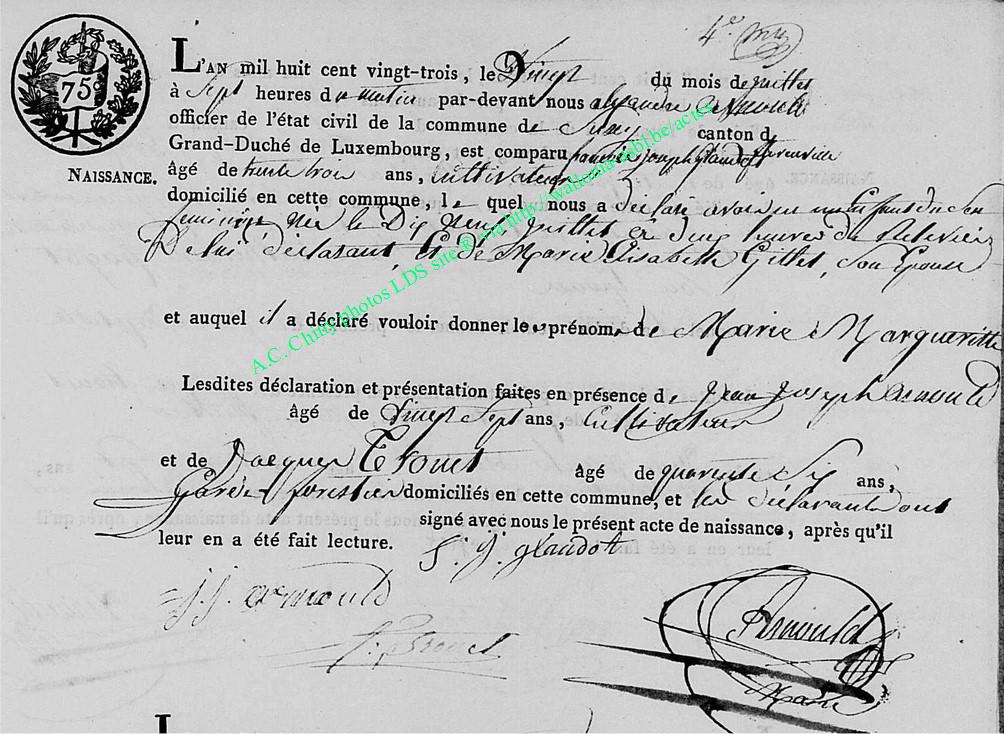 4e
75c
L'AN mil huit cent vingt-trois, le Vingt du mois de juillet
à Sept heures du matin par-devant nous alexandre
officier de l'état civil de la commune de Chiny canton d
Grand-Duché de Luxembourg, est comparu joseph glaudot
NAISSANCE.
âgé de trente trois ans, cultivateur
domicilié en cette commune, le quel nous a déclaré avoir un enfant du Sexe
feminin née le Dix neuf juillet en Cinq heures du
De lui déclarant, Et de Marie Elisabeth Gillet, Son Epouse
et auquel il a déclaré vouloir donner les prénoms de Marie Margueritte
Lesdites déclaration et présentation faites en présence de Jean Joseph arnould
âgé de Vingt Sept ans, Cultivateur
et de Jacques âgé de quarente Six ans,
Garde forestier domiciliés en cette commune, et les déclarants ont
signé avec nous le présent acte de naissance, après qu'il
leur en a été fait lecture.
f. j. glaudot
j. j. arnould
Arnould
A.C. Chiny photos LDS site & via http://wallonia.cabl.be/actes
L